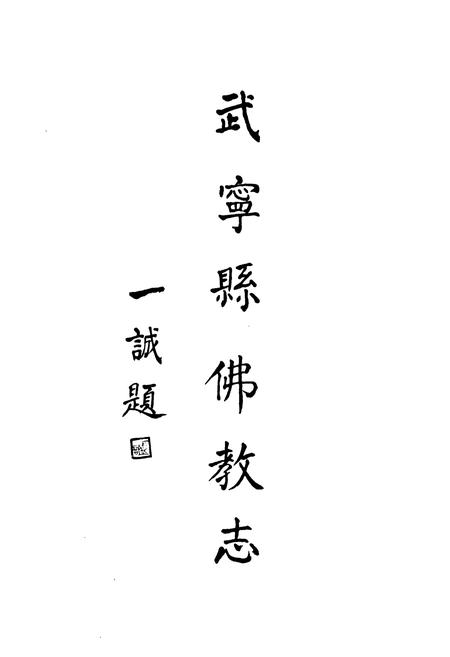 武寧縣佛教志
一誠題